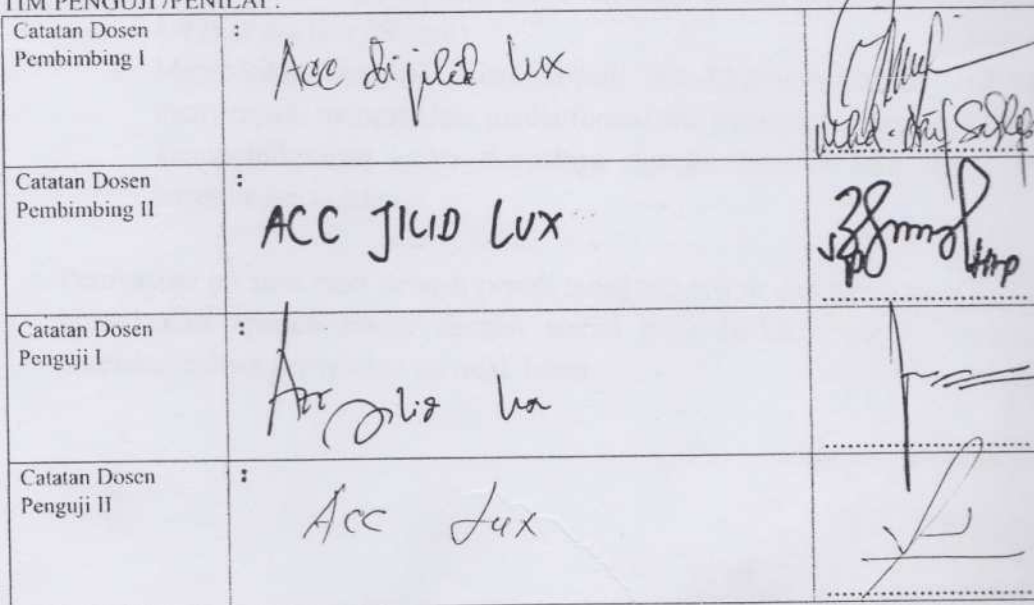 TIM PENGUJI /PENILAI :
Catatan Dosen
Pembimbing I
: Acc dijilid lux
Catatan Dosen
Pembimbing II
: ACC JILID LUX
Catatan Dosen
Penguji I
: Acc jilid lux
Catatan Dosen
Penguji II
: Acc Lux